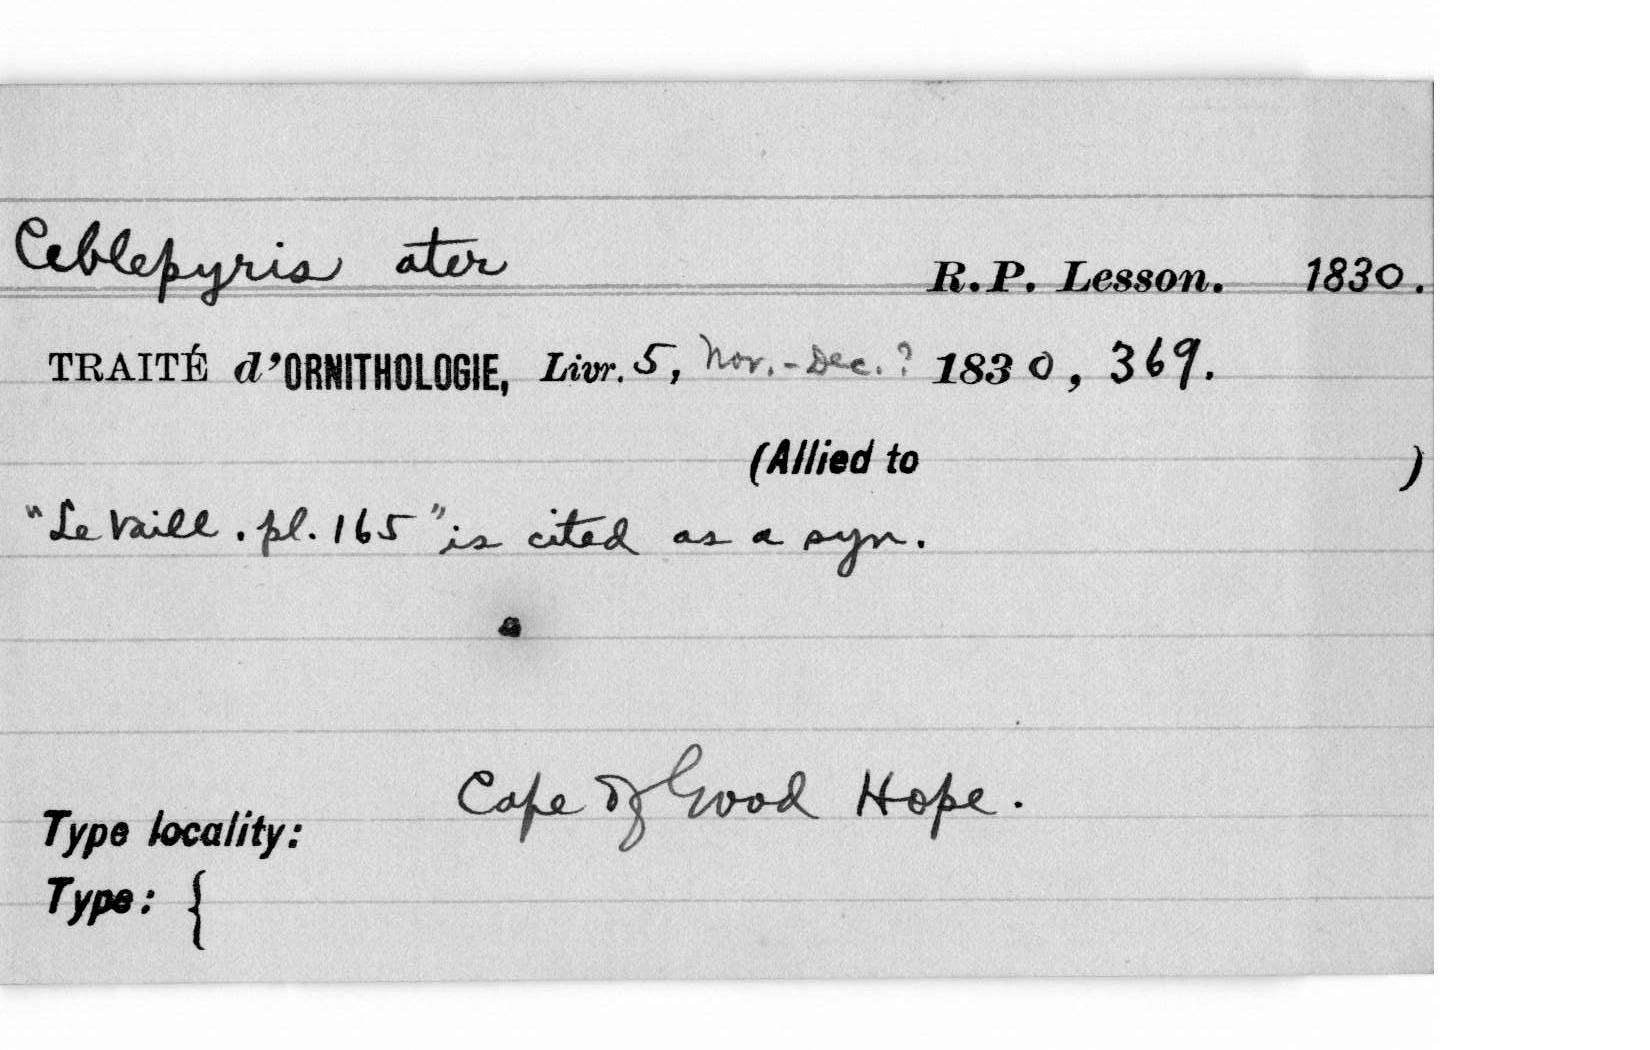 Ceblepyris ater R.P. Lesson. 1830.
TRAITÉ d'ORNITHOLOGIE, Livr. 5, Nov.-Dec.? 1830, 369.
(Allied to )
"Le Vaill. pl. 165" is cited as a syn.
Cape of Good Hope.
Type locality:
Type: {